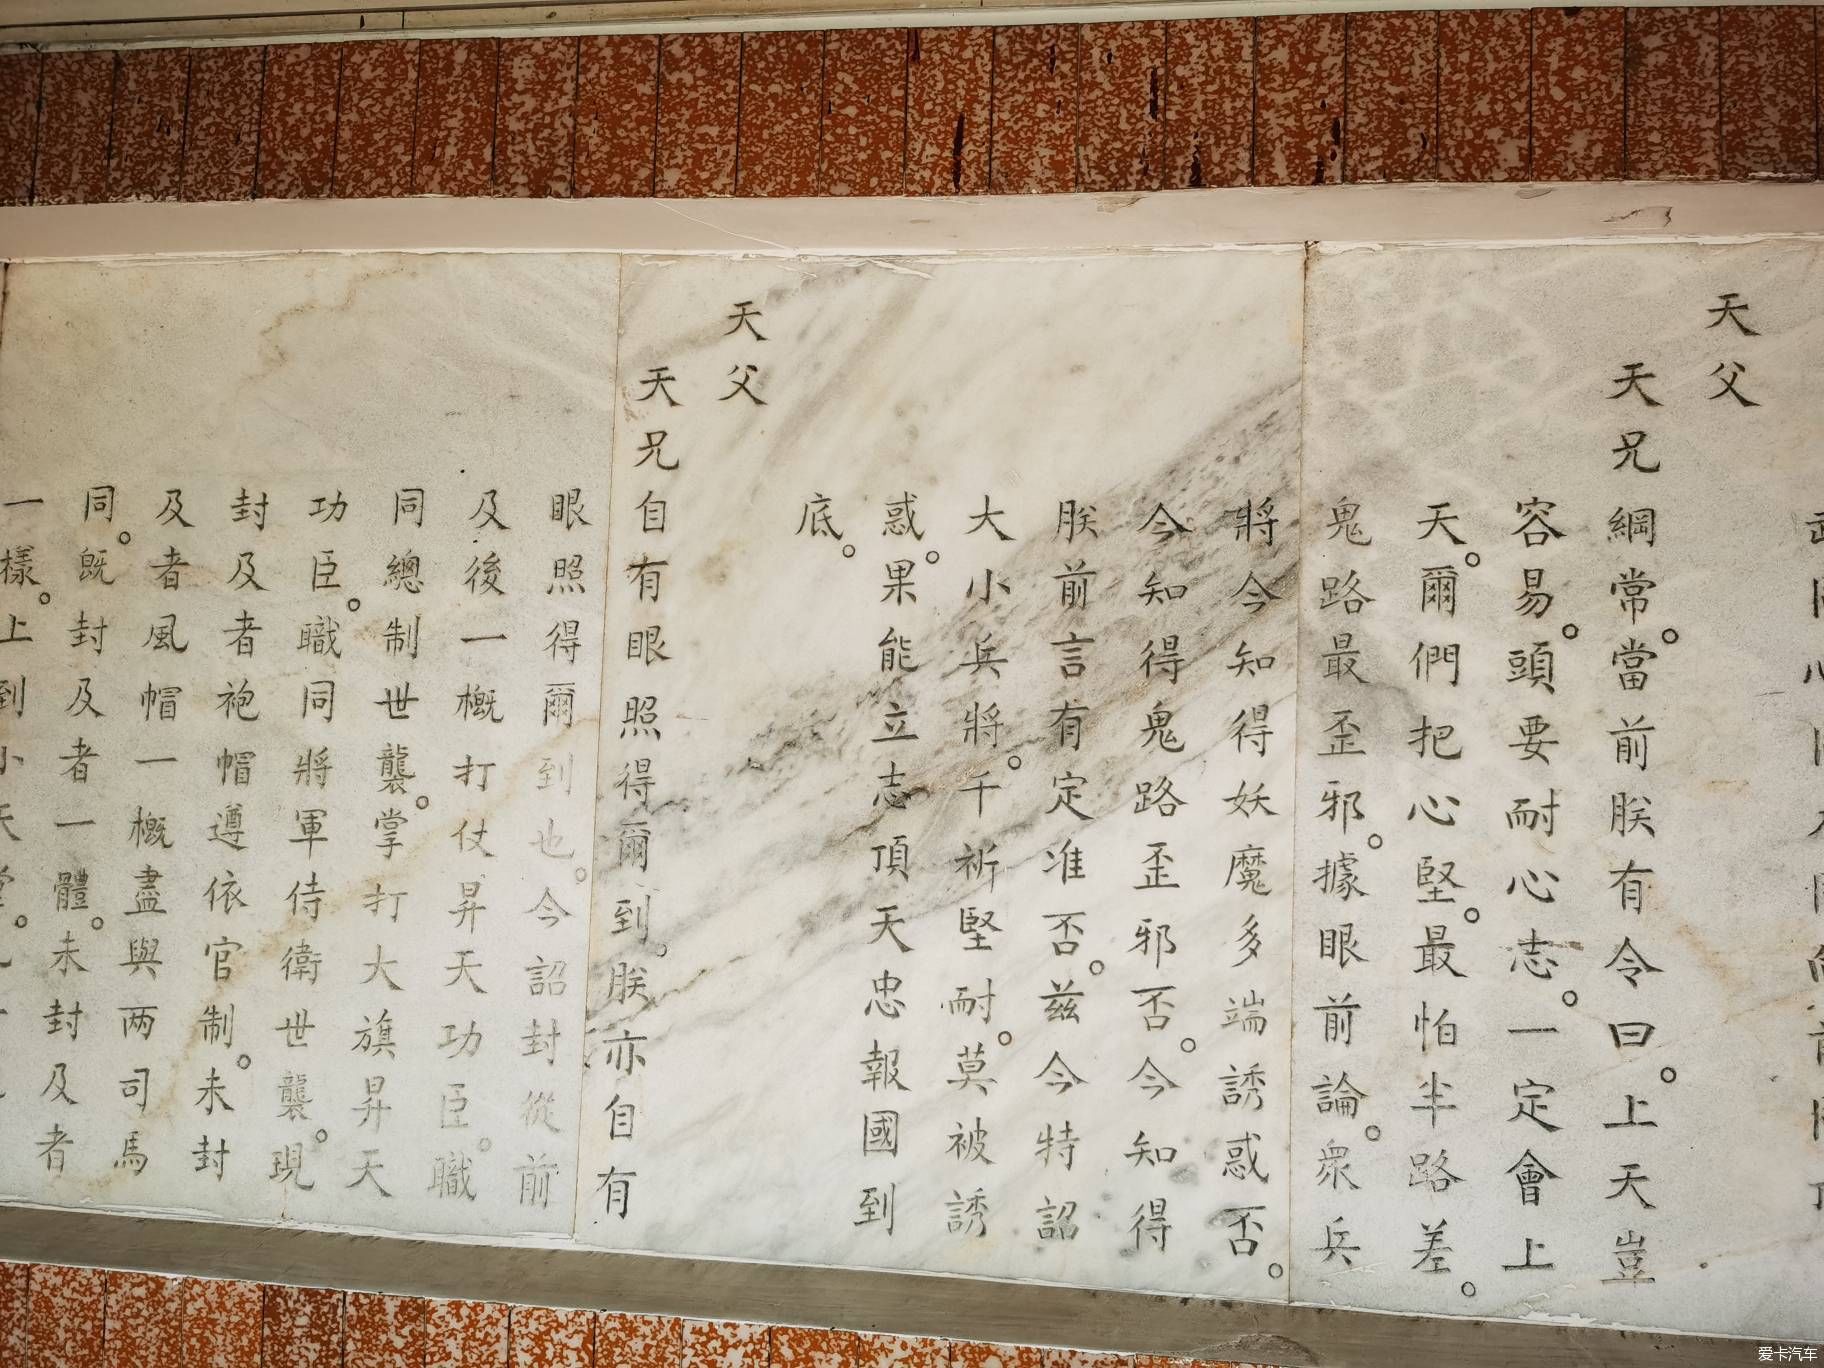 天父
天兄綱常。當前朕有令曰。上天豈
容易。頭要耐心志。一定會上
天。爾們把心堅。最怕半路差。
鬼路最歪邪。據眼前論。衆兵
將今知得妖魔多端誘惑否。
今知得鬼路歪邪否。今知得
朕前言有定准否。茲今特詔
大小兵將。千祈堅耐。莫被誘
惑。果能立志頂天忠報國到
底。
天父
天兄自有眼照得爾到。朕亦自有
眼照得爾到也。今詔封從前
及後一概打仗昇天功臣。職
同總制世襲。掌打大旗昇天
功臣。職同將軍侍衛世襲。現
封及者袍帽遵依官制。未封
及者風帽一概盡與两司馬
同。既封及者一體。未封及者
一樣。上到小天堂。
爱卡汽车